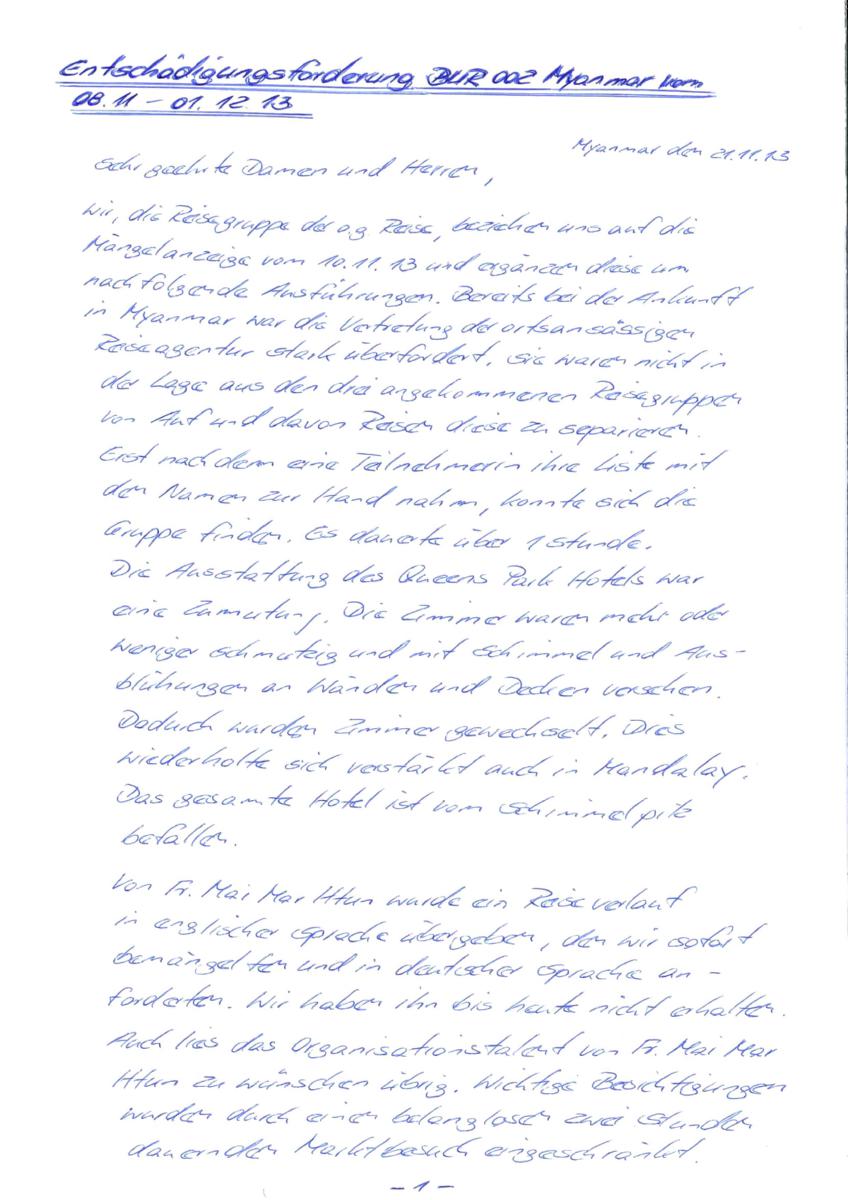 Entschädigungsforderung BUR 002 Myanmar vom
08.11 – 01.12.13
Myanmar den 21.11.13
Sehr geehrte Damen und Herren,
wir, die Reisegruppe der o.g. Reise, beziehen uns auf die
Mängelanzeige vom 10.11.13 und ergänzen diese um
nachfolgende Ausführungen. Bereits bei der Ankunft
in Myanmar war die Vertretung der ortsansässigen
Reiseagentur stark überfordert. Sie waren nicht in
der Lage aus den drei angekommenen Reisegruppen
von Auf und davon Reisen diese zu separieren.
Erst nach dem eine Teilnehmerin ihre Liste mit
den Namen zur Hand nahm, konnte sich die
Gruppe finden. Es dauerte über 1 Stunde.
Die Ausstattung des Queens Park Hotels war
eine Zumutung. Die Zimmer waren mehr oder
weniger schmutzig und mit Schimmel und Aus-
blühungen an Wänden und Decken versehen.
Dadurch wurden Zimmer gewechselt. Dies
wiederholte sich verstärkt auch in Mandalay.
Das gesamte Hotel ist vom Schimmelpilz
befallen.
Von Fr. Mai Mar Htun wurde ein Reiseverlauf
in englischer Sprache übergeben, den wir sofort
bemängelten und in deutscher Sprache an-
forderten. Wir haben ihn bis heute nicht erhalten.
Auch lies das Organisationstalent von Fr. Mai Mar
Htun zu wünschen übrig. Wichtige Besichtigungen
wurden durch einen belanglosen zwei Stunden
dauernden Marktbesuch eingeschränkt.
– 1 –